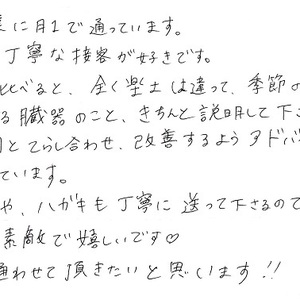 に月1で通っています。
丁寧な接客が好きです。
比べると、全く塗土は違って、季節の
る臓器のこと、きちんと説明して下さ
とてらし合わせ、改善するようアドバ
ています。
や、ハガキも丁寧に送って下さるので
素敵で嬉しいです♡
通わせて頂きたいと思います!!